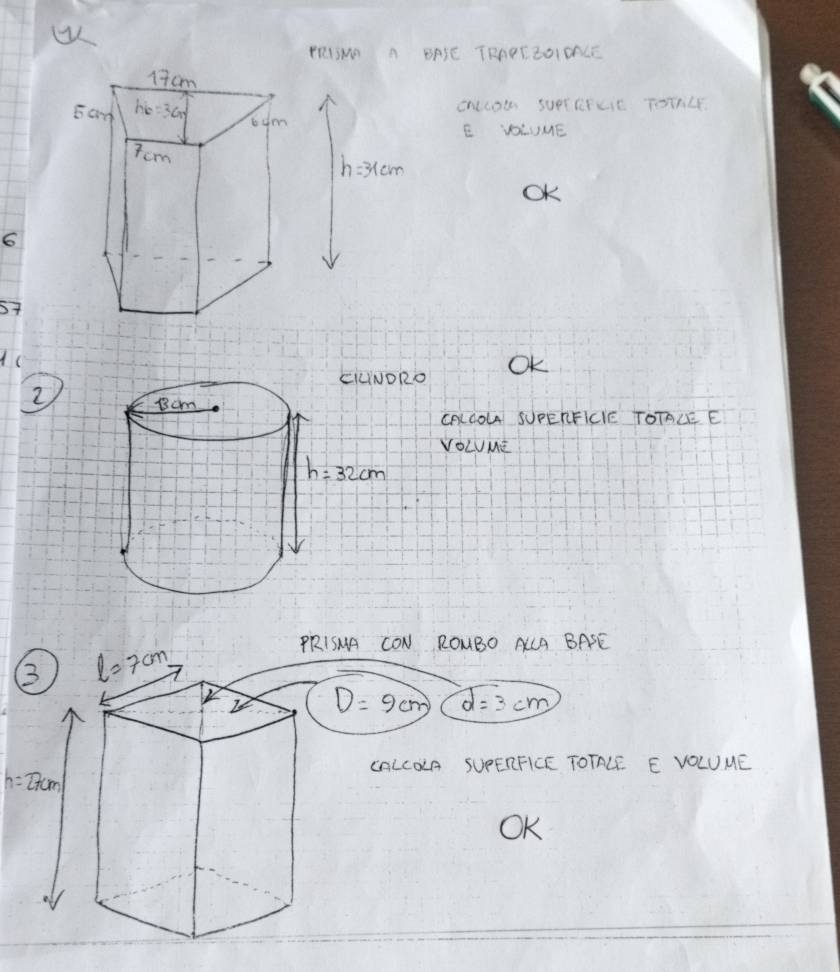 1
PRISMA A BASE TRAPEZOIDALE
17cm
5cm
hb=3cm
6cm
7cm
h=31cm
CALCOLA SUPERFICIE TOTALE
E VOLUME
OK
6
57
2
CILINDRO
OK
13cm
CALCOLA SUPERFICIE TOTALE E
VOLUME
h=32cm
3
PRISMA CON ROMBO ALLA BASE
l=7cm
D=9cm
d=3cm
h=27cm
CALCOLA SUPERFICE TOTALE E VOLUME
OK